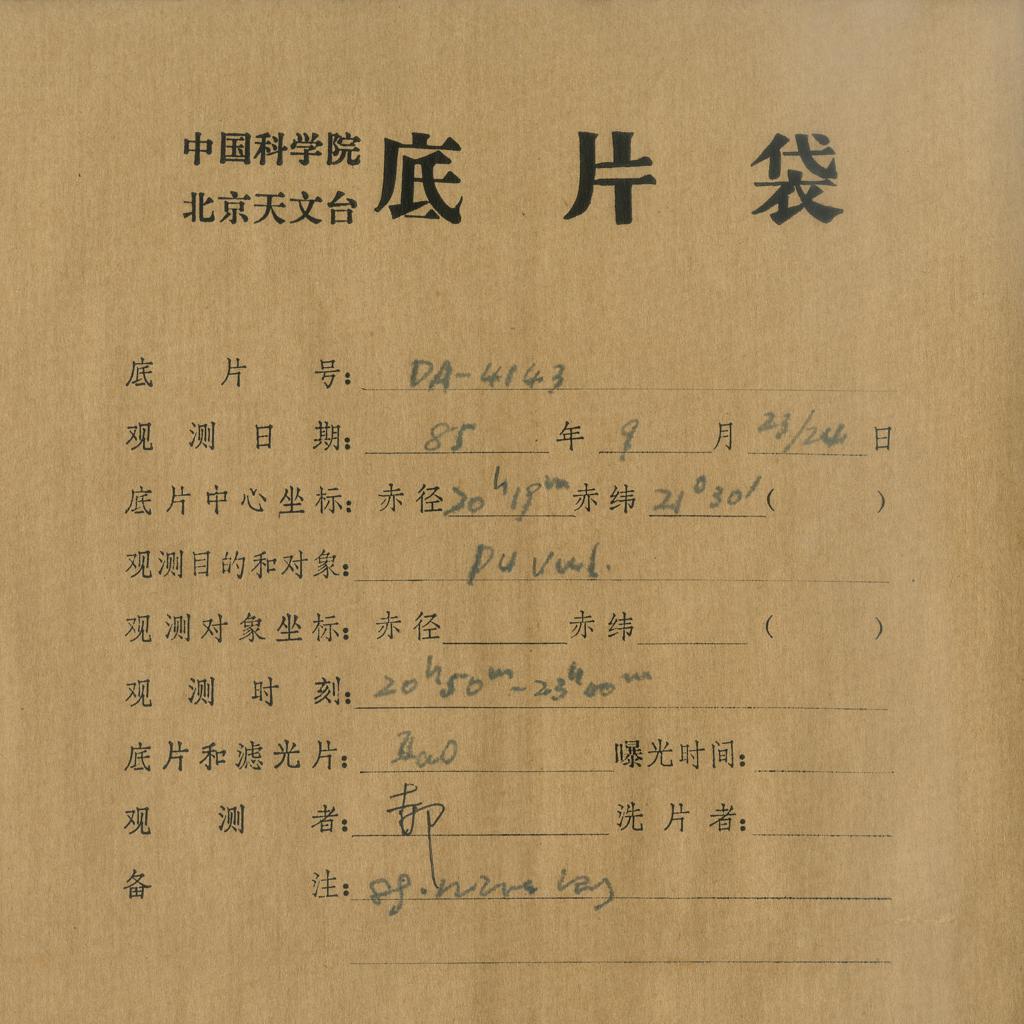 中国科学院
北京天文台
底片袋
底片号: DA-4143
观测日期: 85年9月23/24日
底片中心坐标: 赤径20h19m赤纬21°30′( )
观测目的和对象: PU Vul.
观测对象坐标: 赤径 赤纬 ( )
观测时刻: 20h50m-23h00m
底片和滤光片: IIaO 曝光时间:
观测者: 郝 洗片者:
备注: